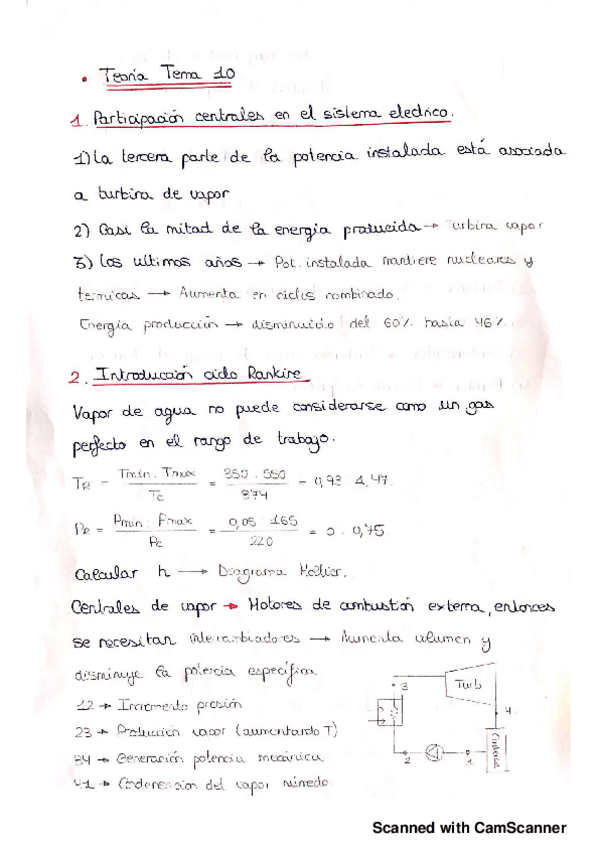 • Teoría Tema 10
1. Participación centrales en el sistema electrico.
1) La tercera parte de la potencia instalada está asociada
a turbina de vapor
2) Casi la mitad de la energía producida → Turbina vapor
3) los ultimos años → Pot. instalada mantiene nucleares y
termicas → Aumenta en ciclos combinado.
Energía producción → disminuido del 60% hasta 46%.
2. Introducción ciclo Rankine
Vapor de agua no puede considerarse como un gas
perfecto en el rango de trabajo.
TR = Tmin. Tmax / Tc = 350 . 550 / 374 = 0,93 1,47.
PR = Pmin. Pmax / Pc = 0,05 165 / 220 = 0 . 0,75
Calcular h → Diagrama Mollier.
Centrales de vapor → Motores de combustión externa, entonces
se necesitan intercambiadores → Aumenta volumen y
disminuye la potencia específica
12 → Incremento presión
23 → Producción vapor (aumentando T)
34 → Generación potencia mecánica
41 → Condensacion del vapor húmedo
Turb
3
4
2
1
Scanned with CamScanner